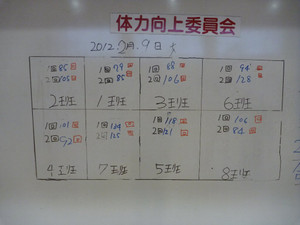 体力向上委員会
2012 2月.9日
1回 86回
2回 108回
2班
1回 79回
2回 85回
1班
1回 88回
2回 106回
3班
1回 94回
2回 128回
6班
1回 101回
2回 92回
4班
1回 124回
2回 125
7班
1回 118回
2回 121
5班
1回 106回
2回 84回
8班